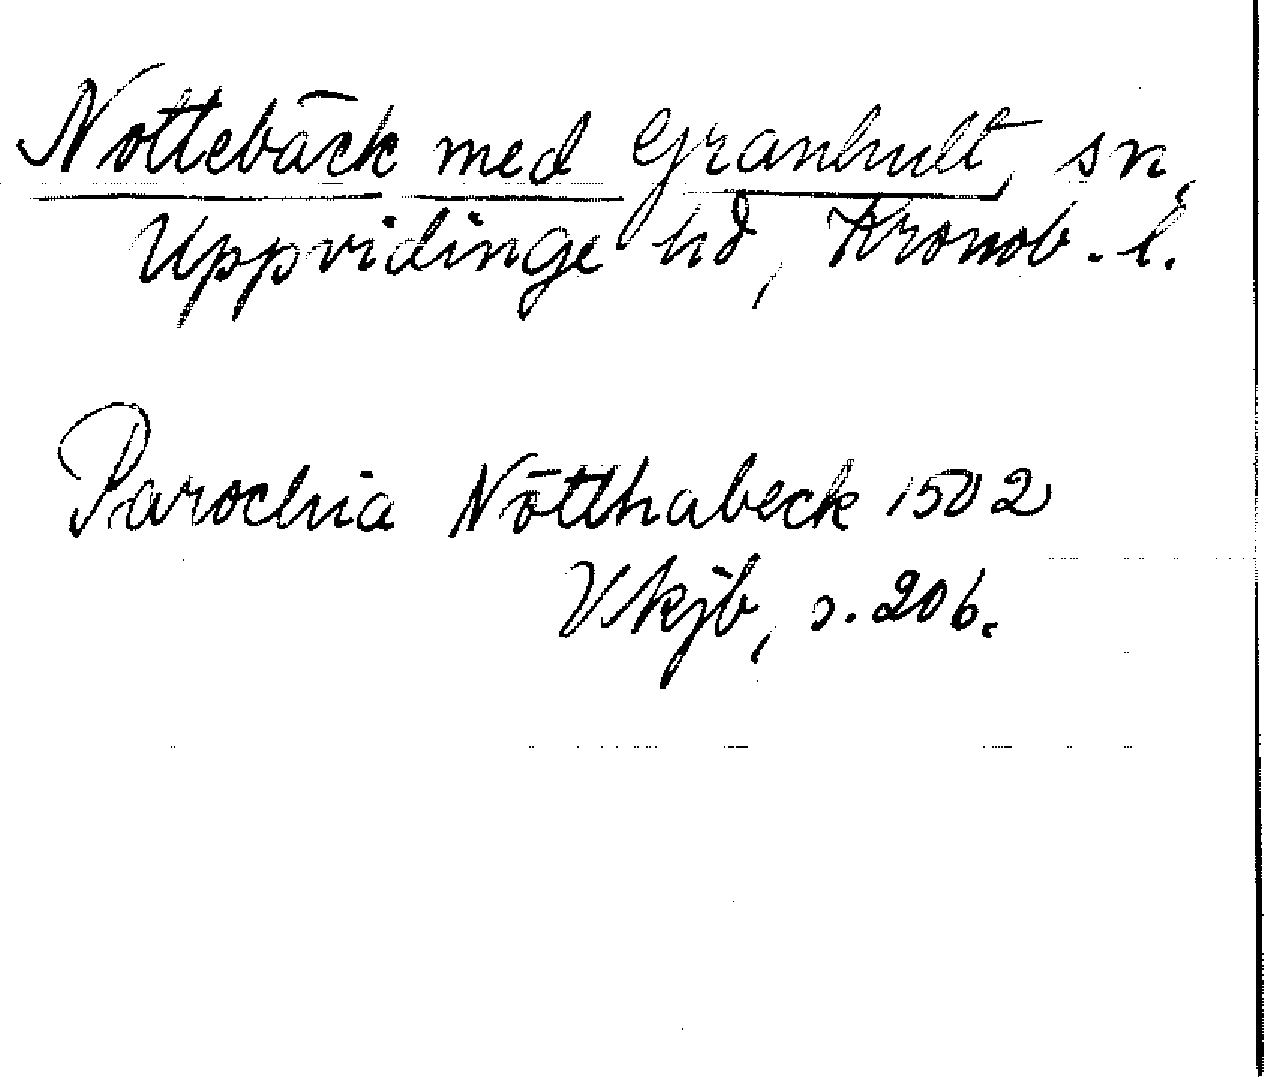 Nottebäck med Granhult, sn,
Uppvidinge hd, Kronob. l.
Parochia Nötthabeck 1502
Vkjb, s. 206.